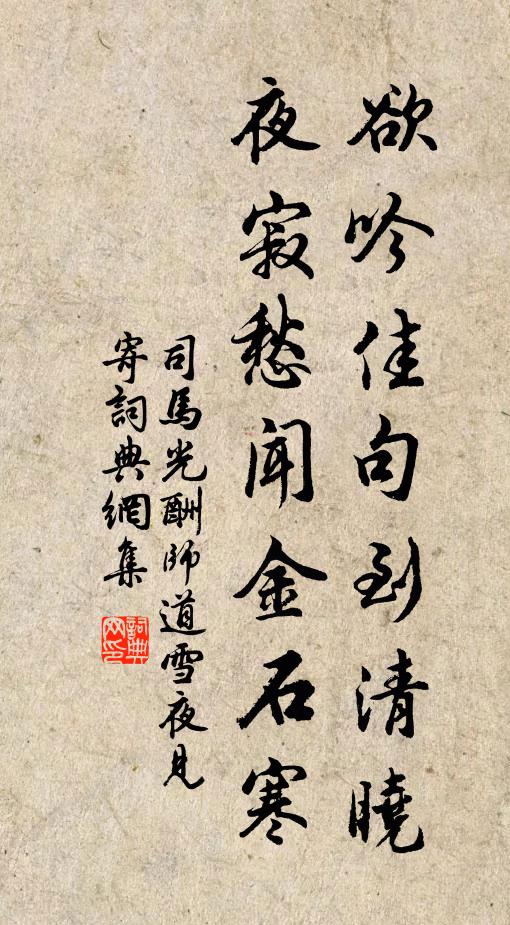 欲吟佳句到清曉
夜寂愁聞金石寒
司馬光酬師道雪夜見
寄詞典網集
詞典
网印